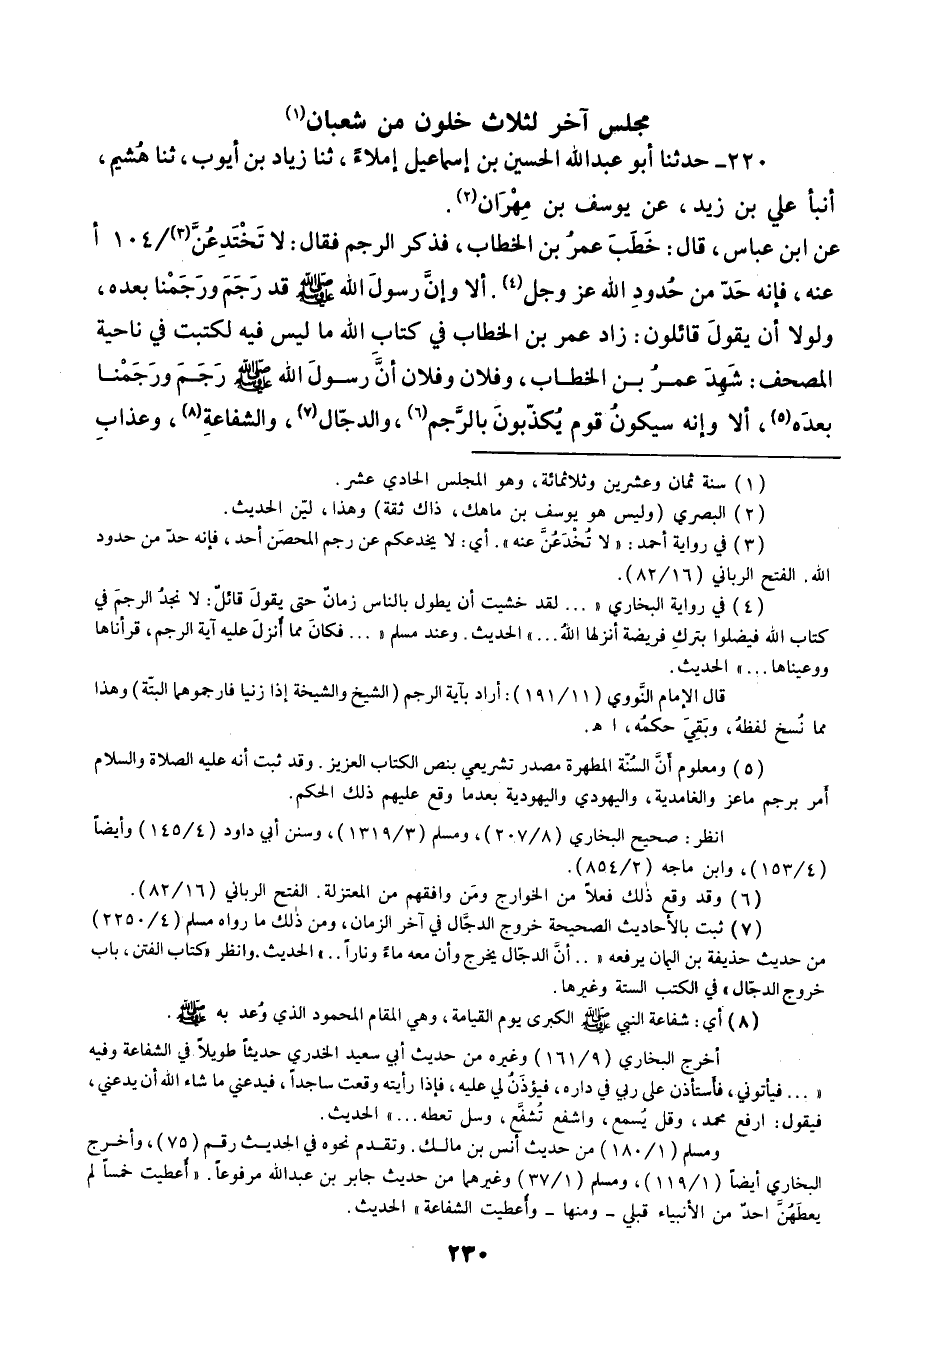 مجلس آخر لثلاث خلون من شعبان(١)
٢٢٠ـ حدثنا أبو عبدالله الحسين بن إسماعيل إملاءً، ثنا زياد بن أيوب، ثنا هُشيم،
أنبأ علي بن زيد، عن يوسف بن مِهْرَان(٢).
عن ابن عباس، قال: خَطَبَ عمرُ بن الخطاب، فذكر الرجم فقال: لا تَخْتَدِعُنَّ(٣)/١٠٤ أ
عنه، فإنه حَدّ من حُدودِ الله عز وجل(٤). ألا وإنَّ رسولَ الله ﷺ قد رَجَمَ ورَجَمْنا بعده،
ولولا أن يقولَ قائلون: زاد عمر بن الخطاب في كتاب الله ما ليس فيه لكتبت في ناحية
المصحف: شَهِدَ عمرُ بن الخطاب، وفلان وفلان أنَّ رسولَ الله ﷺ رَجَمَ ورَجَمْنا
بعدَه(٥)، ألا وإنه سيكونُ قوم يُكذّبونَ بالرَّجم(٦)، والدجّال(٧)، والشفاعةِ(٨)، وعذابِ
(١) سنة ثمان وعشرين وثلاثمائة، وهو المجلس الحادي عشر.
(٢) البصري (وليس هو يوسف بن ماهك، ذاك ثقة) وهذا، ليّن الحديث.
(٣) في رواية أحمد: «لا تُخْدَعُنَّ عنه». أي: لا يخدعكم عن رجم المحصَن أحد، فإنه حدّ من حدود
الله. الفتح الرباني (٨٢/١٦).
(٤) في رواية البخاري «... لقد خشيت أن يطول بالناس زمانٌ حتى يقولَ قائلٌ: لا نجدُ الرجمَ في
كتاب الله فيضلوا بتركِ فريضة أنزلها اللهُ...» الحديث. وعند مسلم «... فكانَ مما أُنزلَ عليه آية الرجم، قرأناها
ووعيناها...» الحديث.
قال الإمام النَّووي (١٩١/١١): أراد بآية الرجم (الشيخ والشيخة إذا زنيا فارجموهما البتّة) وهذا
مما نُسخ لفظهُ، وبَقِيَ حكمُه، ا هـ.
(٥) ومعلوم أنَّ السُنّة المطهرة مصدر تشريعي بنص الكتاب العزيز. وقد ثبت أنه عليه الصلاة والسلام
أمر برجم ماعز والغامدية، واليهودي واليهودية بعدما وقع عليهم ذلك الحكم.
انظر: صحيح البخاري (٢٠٧/٨)، ومسلم (١٣١٩/٣)، وسنن أبي داود (١٤٥/٤) وأيضاً
(١٥٣/٤)، وابن ماجه (٨٥٤/٢).
(٦) وقد وقع ذٰلك فعلاً من الخوارج ومَن وافقهم من المعتزلة. الفتح الرباني (٨٢/١٦).
(٧) ثبت بالأحاديث الصحيحة خروج الدجَّال في آخر الزمان، ومن ذٰلك ما رواه مسلم (٢٢٥٠/٤)
من حديث حذيفة بن اليمان يرفعه «.. أنَّ الدجّال يخرج وأن معه ماءً وناراً..» الحديث. وانظر «كتاب الفتن، باب
خروج الدجّال» في الكتب الستة وغيرها.
(٨) أي: شفاعة النبي ﷺ الكبرى يوم القيامة، وهي المقام المحمود الذي وُعد به ﷺ.
أخرج البخاري (١٦١/٩) وغيره من حديث أبي سعيد الخدري حديثاً طويلاً في الشفاعة وفيه
«... فيأتوني، فأستأذن على ربي في داره، فيؤذَنُ لي عليه، فإذا رأيته وقعت ساجداً، فيدعني ما شاء الله أن يدعني،
فيقول: ارفع محمد، وقل يُسمع، واشفع تُشفَّع، وسل تعطه...» الحديث.
ومسلم (١٨٠/١) من حديث أنس بن مالك. وتقدم نحوه في الحديث رقم (٧٥)، وأخرج
البخاري أيضاً (١١٩/١)، ومسلم (٣٧/١) وغيرهما من حديث جابر بن عبدالله مرفوعاً. «أُعطيت خمساً لم
يعطَهُنَّ احدّ من الأنبياء قبلي ـ ومنها ـ وأُعطيت الشفاعة» الحديث.
٢٣٠